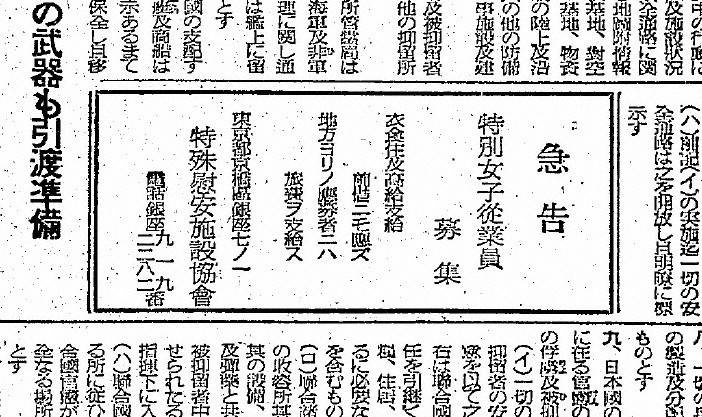 及施設狀況
全通路に関
地圖附情報
基地、對空
基地、物資
の陸上及沿
の他の防備
事施設及建
及被抑留者
他の抑留所
所管當局は
海軍及非軍
理に關し通
は艦上に留
とす
國の支配す
艦及商船は
示あるまて
保全し且移
の武器も引渡準備
(ハ)前記(イ)の実施迄一切の安
全通路は之を開放し且明瞭に標
示す
急告
特別女子從業員
募集
衣食住及高給支給
前借ニモ應ズ
地方ヨリノ應募者ニハ
旅費ヲ支給ス
東京都京橋區銀座七ノ一
特殊慰安施設協會
電話銀座 九一九番
二二八二
八、一切の
の製造及分
ものとす
九、日本國の
に在る官憲の
の俘虜及被抑
(イ)一切の
抑留者の安
意を以て之
右は聯合國
任を引繼く
糧、住居、
るに必要な
を含むもの
(ロ)聯合諸
の收容所其
其の設備、
及彈藥と共
被抑留者中
せられたる
指揮下に入
(ハ)聯合國
る所に從ひ
合國官憲か
全なる場所
とす